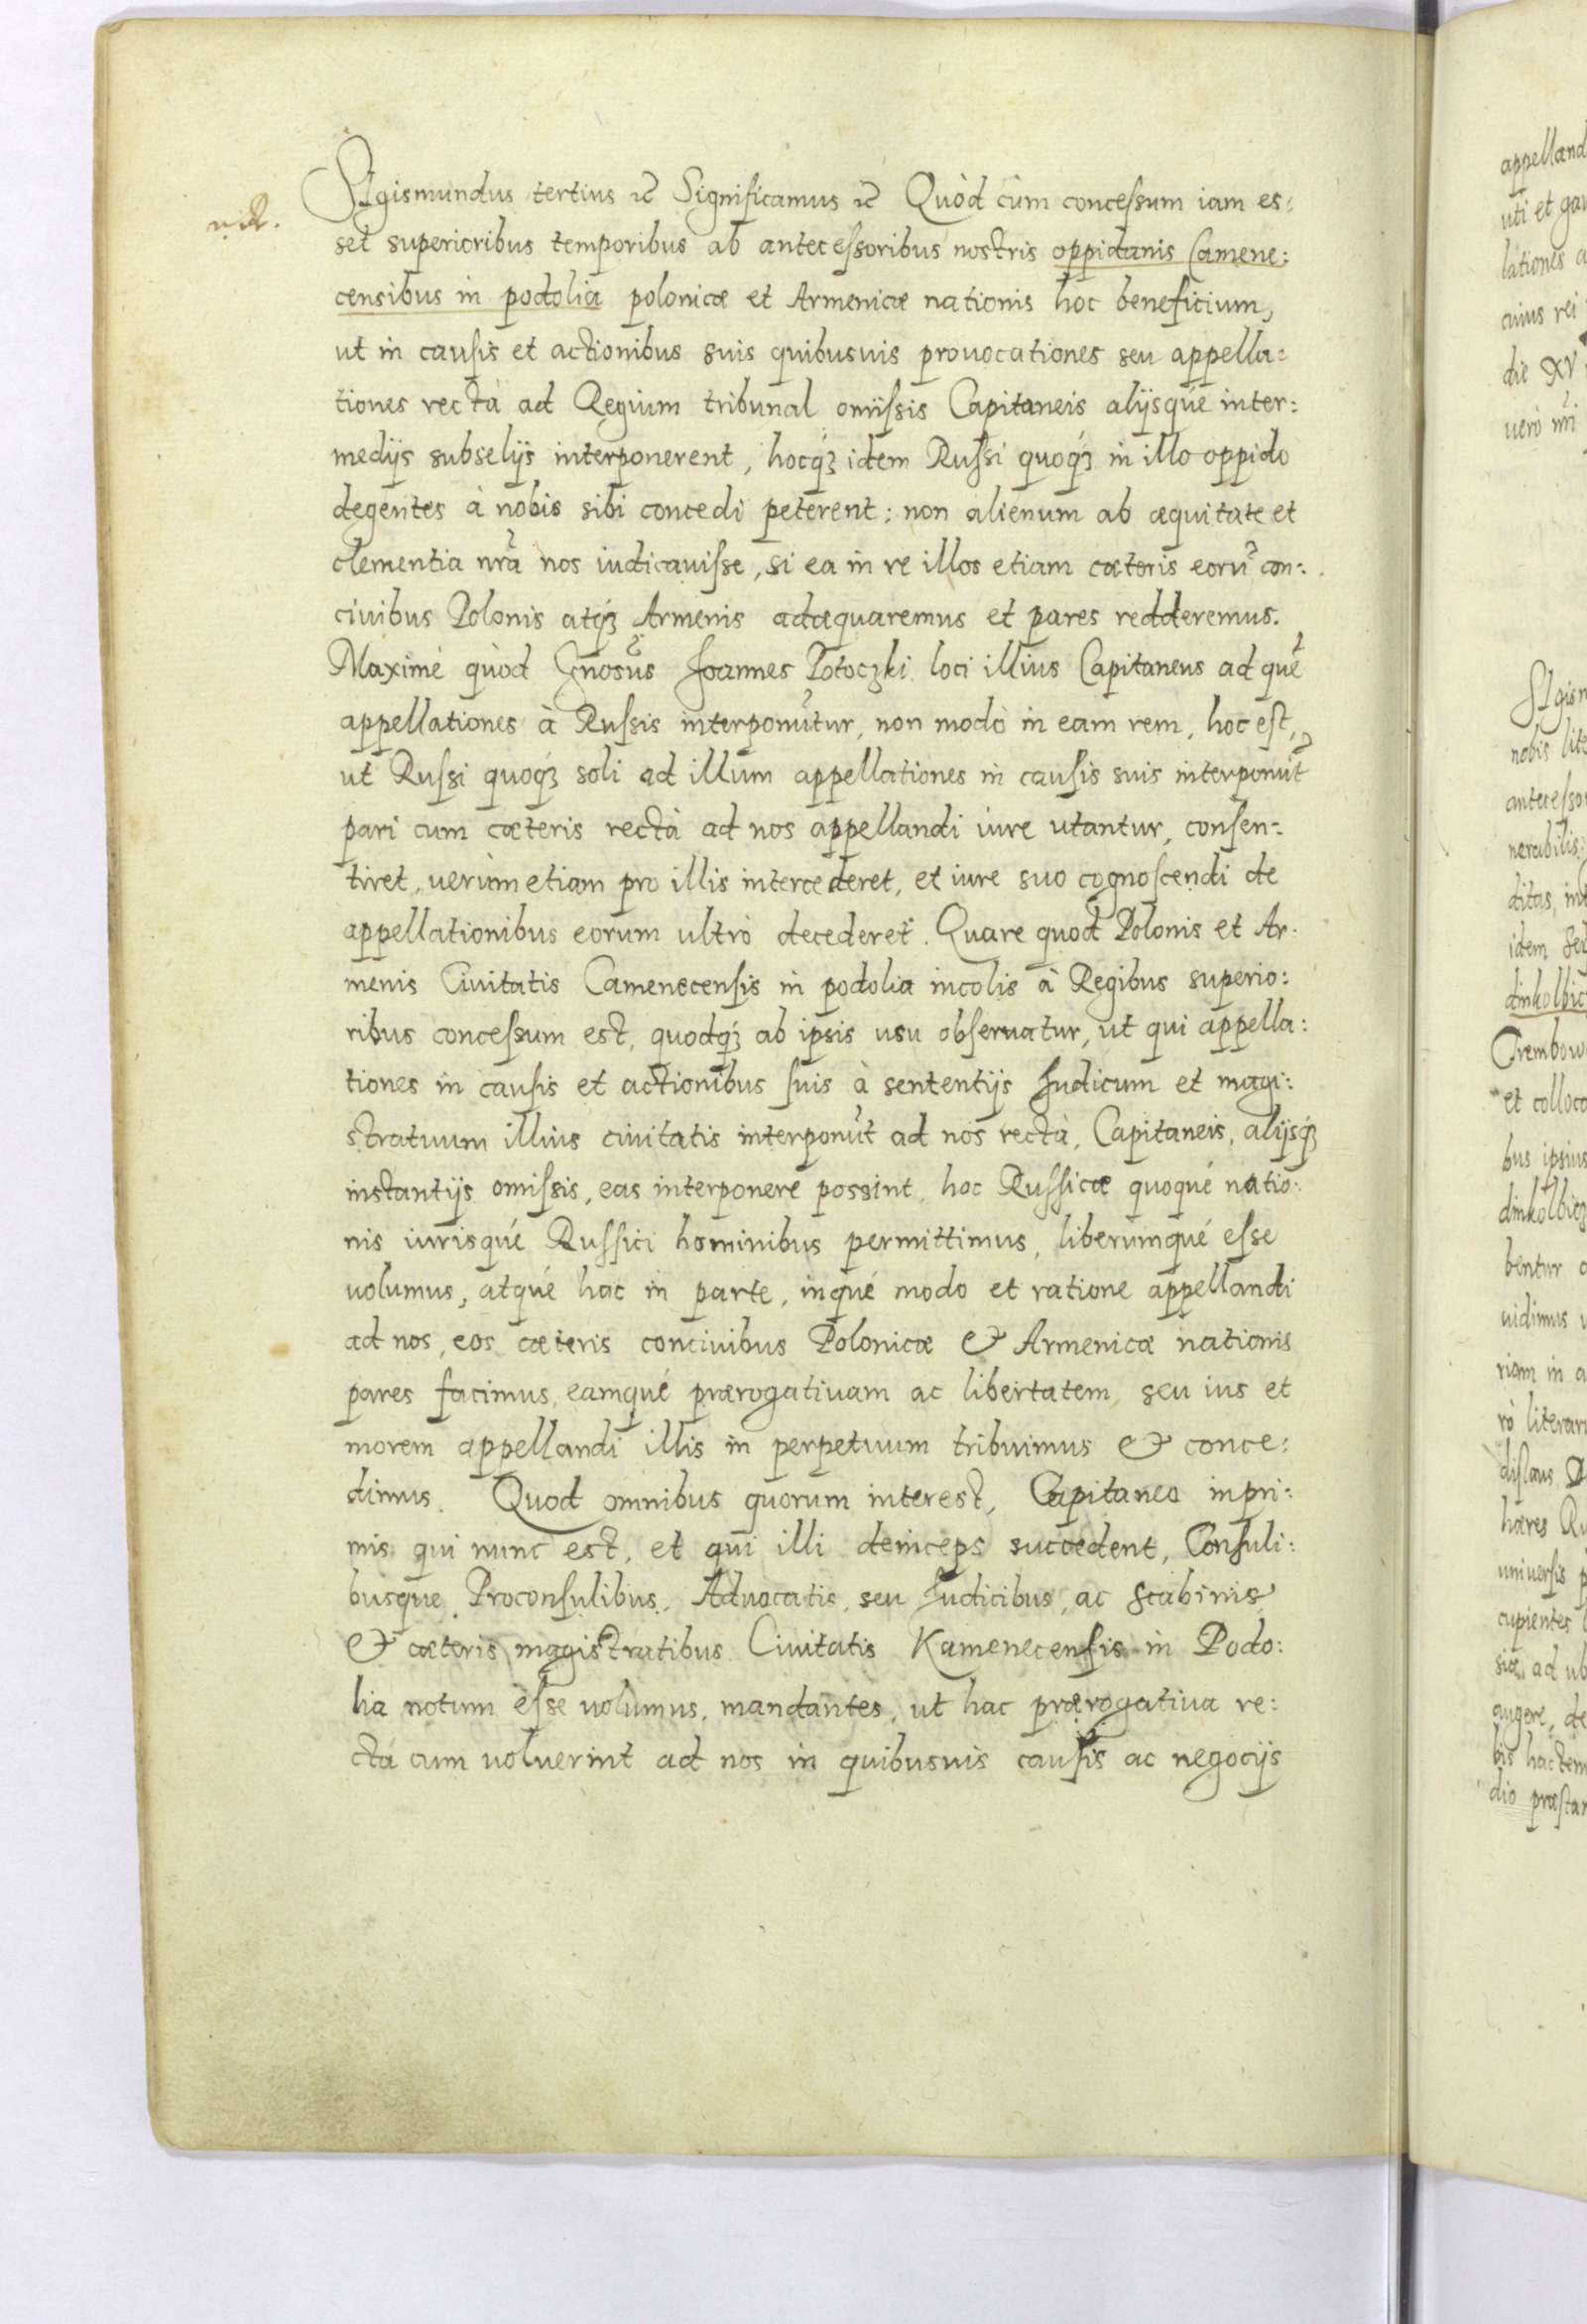 Sigismundus tertius etc Significamus etc Quòd cùm concessum iam es:
set superioribus temporibus ab antecessoribus nostris oppidanis Camene:
censibus in podolia polonicæ et Armenicæ nationis hoc beneficium,
ut in causis et actionibus suis quibusuis prouocationes seu appella:
tiones rectà ad Regium tribunal omissis Capitaneis alijsqué inter:
medijs subselijs interponerent, hocq́ʒ idem Russi quoq́ʒ in illo oppido
degentes à nobis sibi concedi peterent: non alienum ab æquitate et
clementia nrã nos iudicauisse, si ea in re illos etiam cæteris eorũ con:
ciuibus Polonis atq́ʒ Armenis adæquaremus et pares redderemus.
Maximè quòd Gnosũs Joannes Potoczki loci illius Capitaneus ad quẽ
appellationes à Russis interponũtur, non modò in eam rem, hoc est,
ut Russi quoq́ʒ soli ad illum appellationes in causis suis interponũt
pari cum cæteris rectà ad nos appellandi iure utantur, consen:
tiret, uerùm etiam pro illis intercederet, et iure suo cognoscendi de
appellationibus eorum ultrò decederet. Quare quod Polonis et Ar:
menis Ciuitatis Camenecensis in podolia incolis à Regibus superio:
ribus concessum est, quodq́ʒ ab ipsis usu obseruatur, ut qui appella:
tiones in causis et actionibus suis à sententijs Judicum et magi:
stratuum illius ciuitatis interponũt ad nos rectà, Capitaneis, alijsq́ʒ
instantijs omissis, eas interponere possint, hoc Russicæ quoqué natio:
nis iurisqué Russici hominibus permittimus, liberumqué esse
uolumus, atqué hac in parte, inqué modo et ratione appellandi
ad nos, eos cæteris conciuibus Polonicæ & Armenicæ nationis
pares facimus, eamqué prærogatiuam ac libertatem, seu ius et
morem appellandi illis in perpetuum tribuimus & conce:
dimus. Quod omnibus quorum interest, Capitaneo inpri:
mis qui nunc est, et qui illi deinceps succedent, Consuli:
busque Proconsulibus, Aduocatis, seu Judicibus, ac Scabinis
& cæteris magistratibus Ciuitatis Kamenecensis in Podo:
lia notum esse uolumus, mandantes, ut hac prærogatiua re:
ctà cum uoluerint ad nos in quibusuis causis ac negocijs
appelland
uti et gau
lationes a
cuius rei
die XV
uerò nri
Sigism
nobis lite
antecessor
nerabilis
ditas, int
idem
dinkolbic
Trembow
et colloca
bus ipsius
dinkolbicz
bentur
uidimus
riam in a
rò literar
dislaus
hæres Ru
uniuersis p
cupientes
siæ, ad ub
augere, de
bis hacten
dio præstan